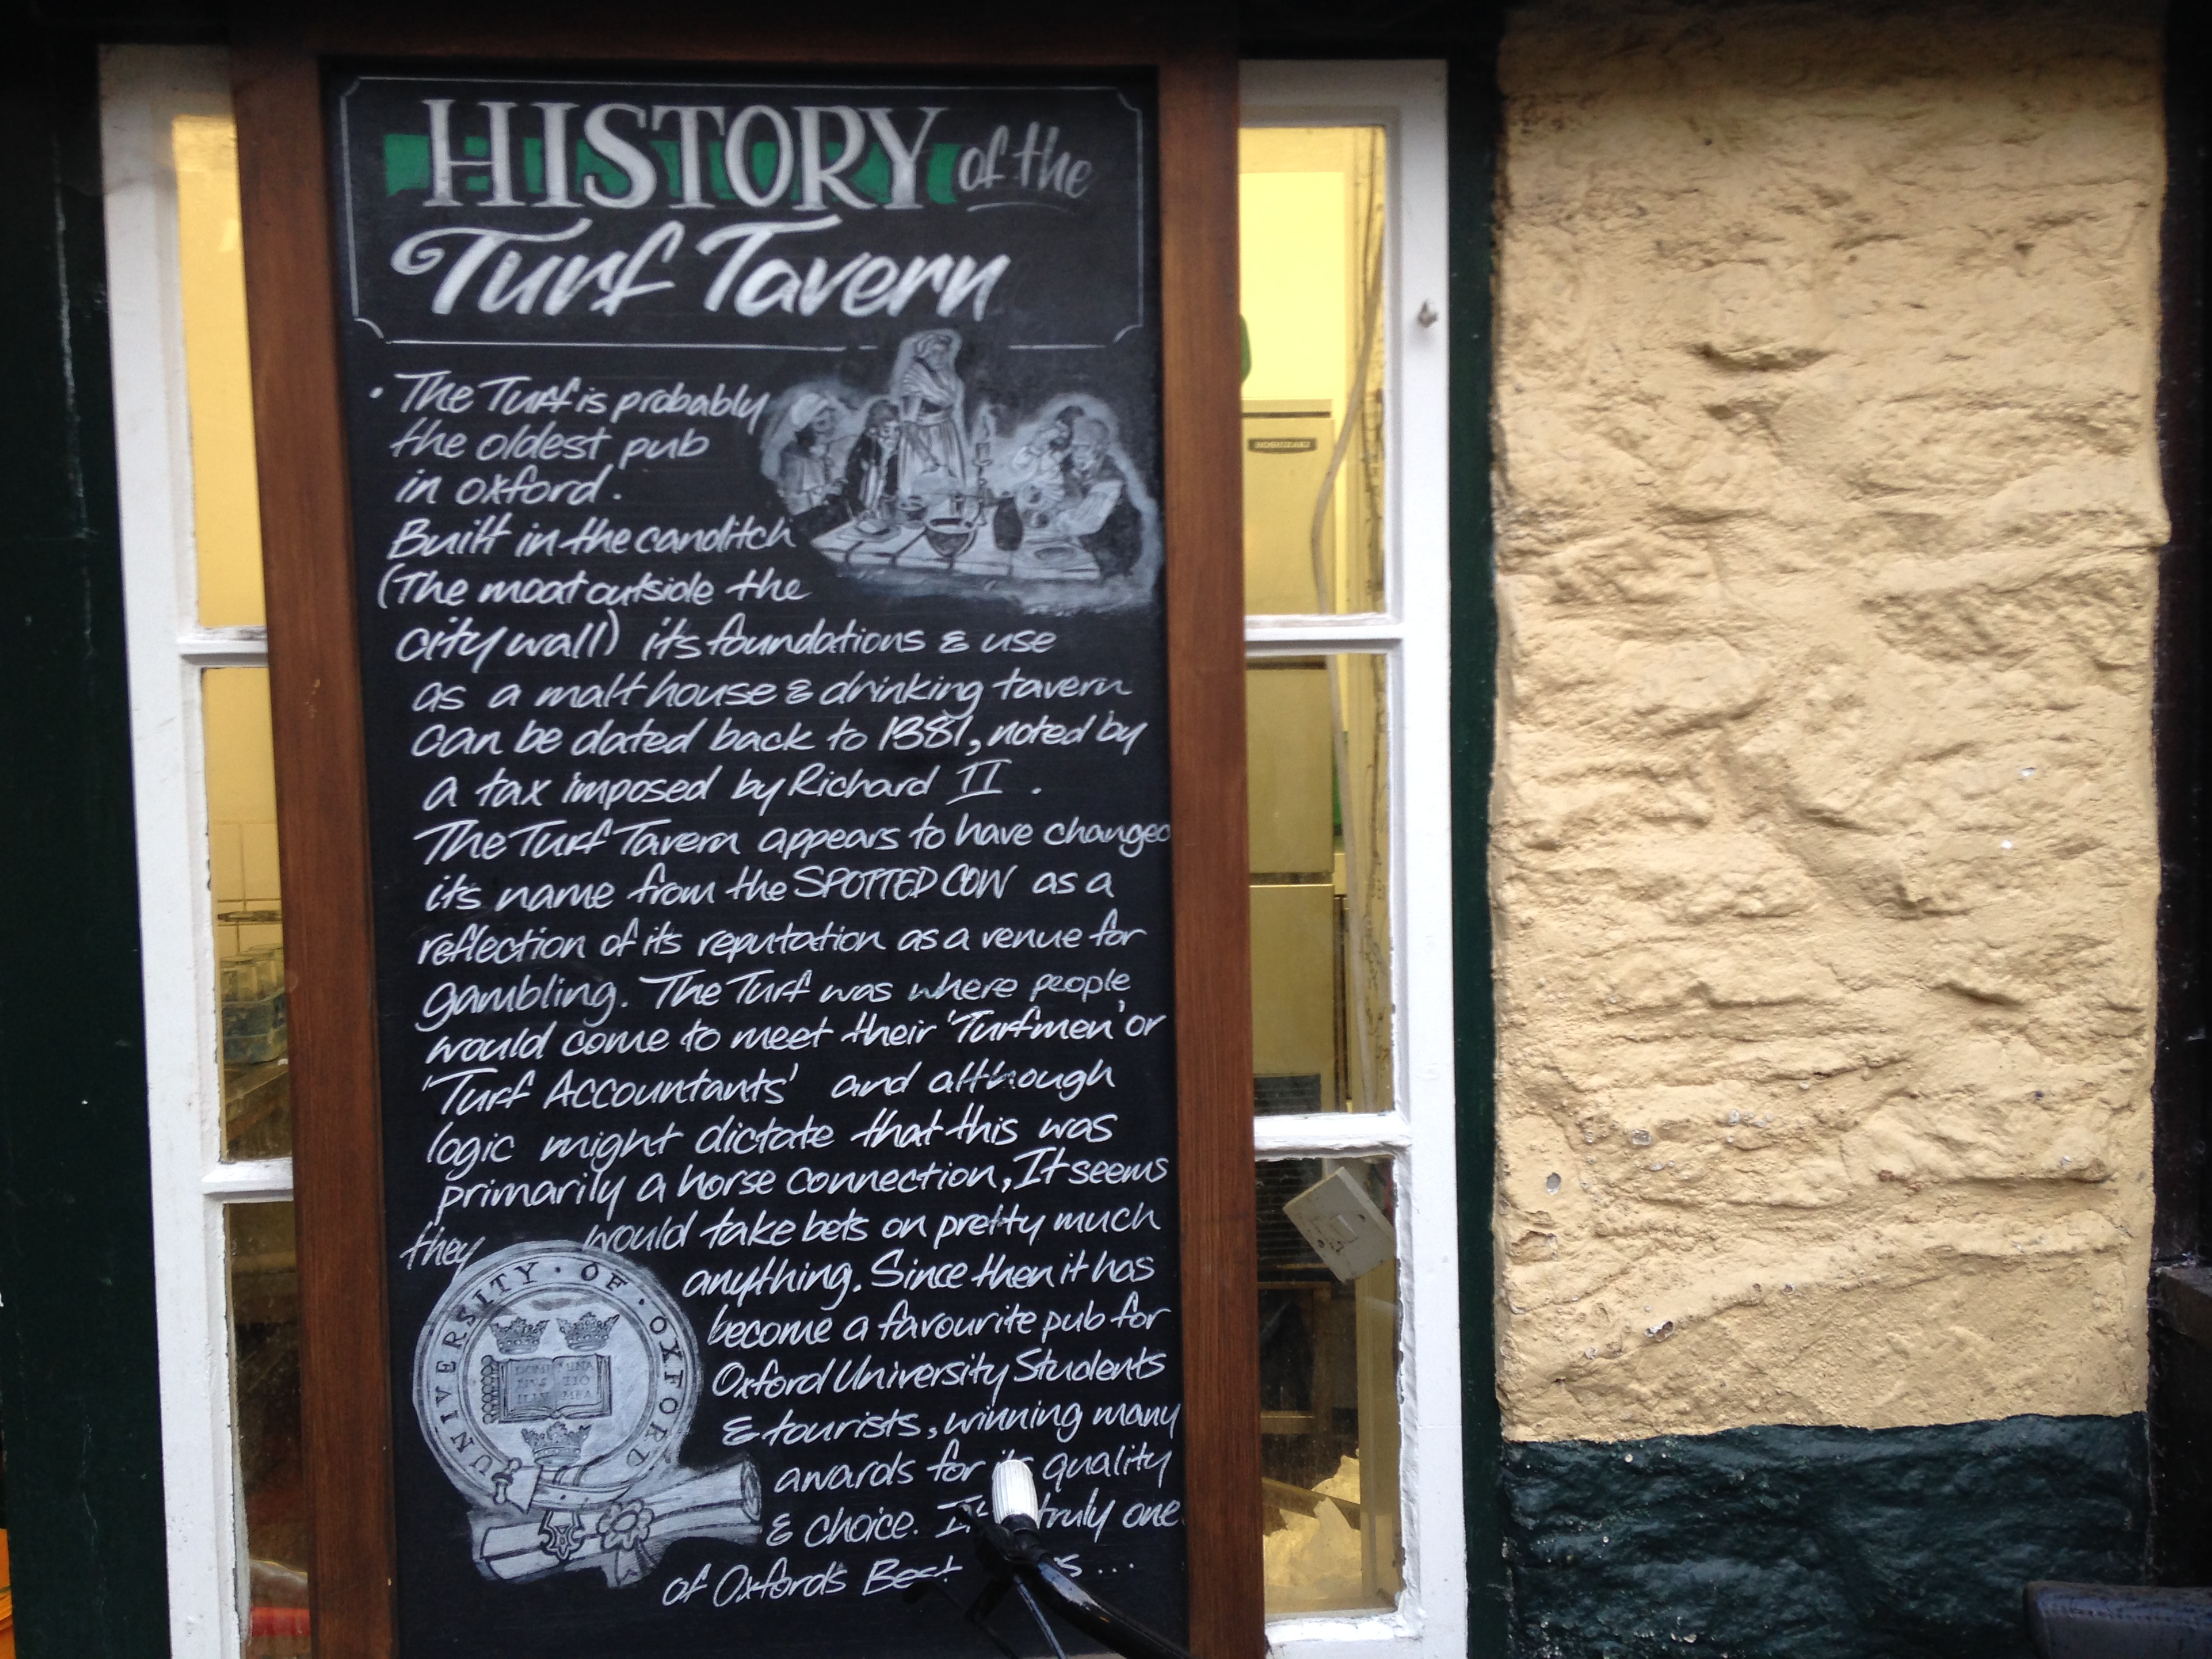 HISTORY of the
Turf Tavern
• The Turf is probably
the oldest pub
in oxford.
Built in the canditch
(The moat outside the
city wall) its foundations & use
as a malt house & drinking tavern
can be dated back to 1381, noted by
a tax imposed by Richard II.
The Turf Tavern appears to have changed
its name from the SPOTTED COW as a
reflection of its reputation as a venue for
gambling. The Turf was where people
would come to meet their 'Turfmen' or
'Turf Accountants' and although
logic might dictate that this was
primarily a horse connection, It seems
they would take bets on pretty much
anything. Since then it has
become a favourite pub for
Oxford University Students
& tourists, winning many
awards for its quality
& choice. truly one
of Oxford's Best
UNIVERSITY · OF · OXFORD
DOMI NUS
ILLU MEA
HOSHIZAKI